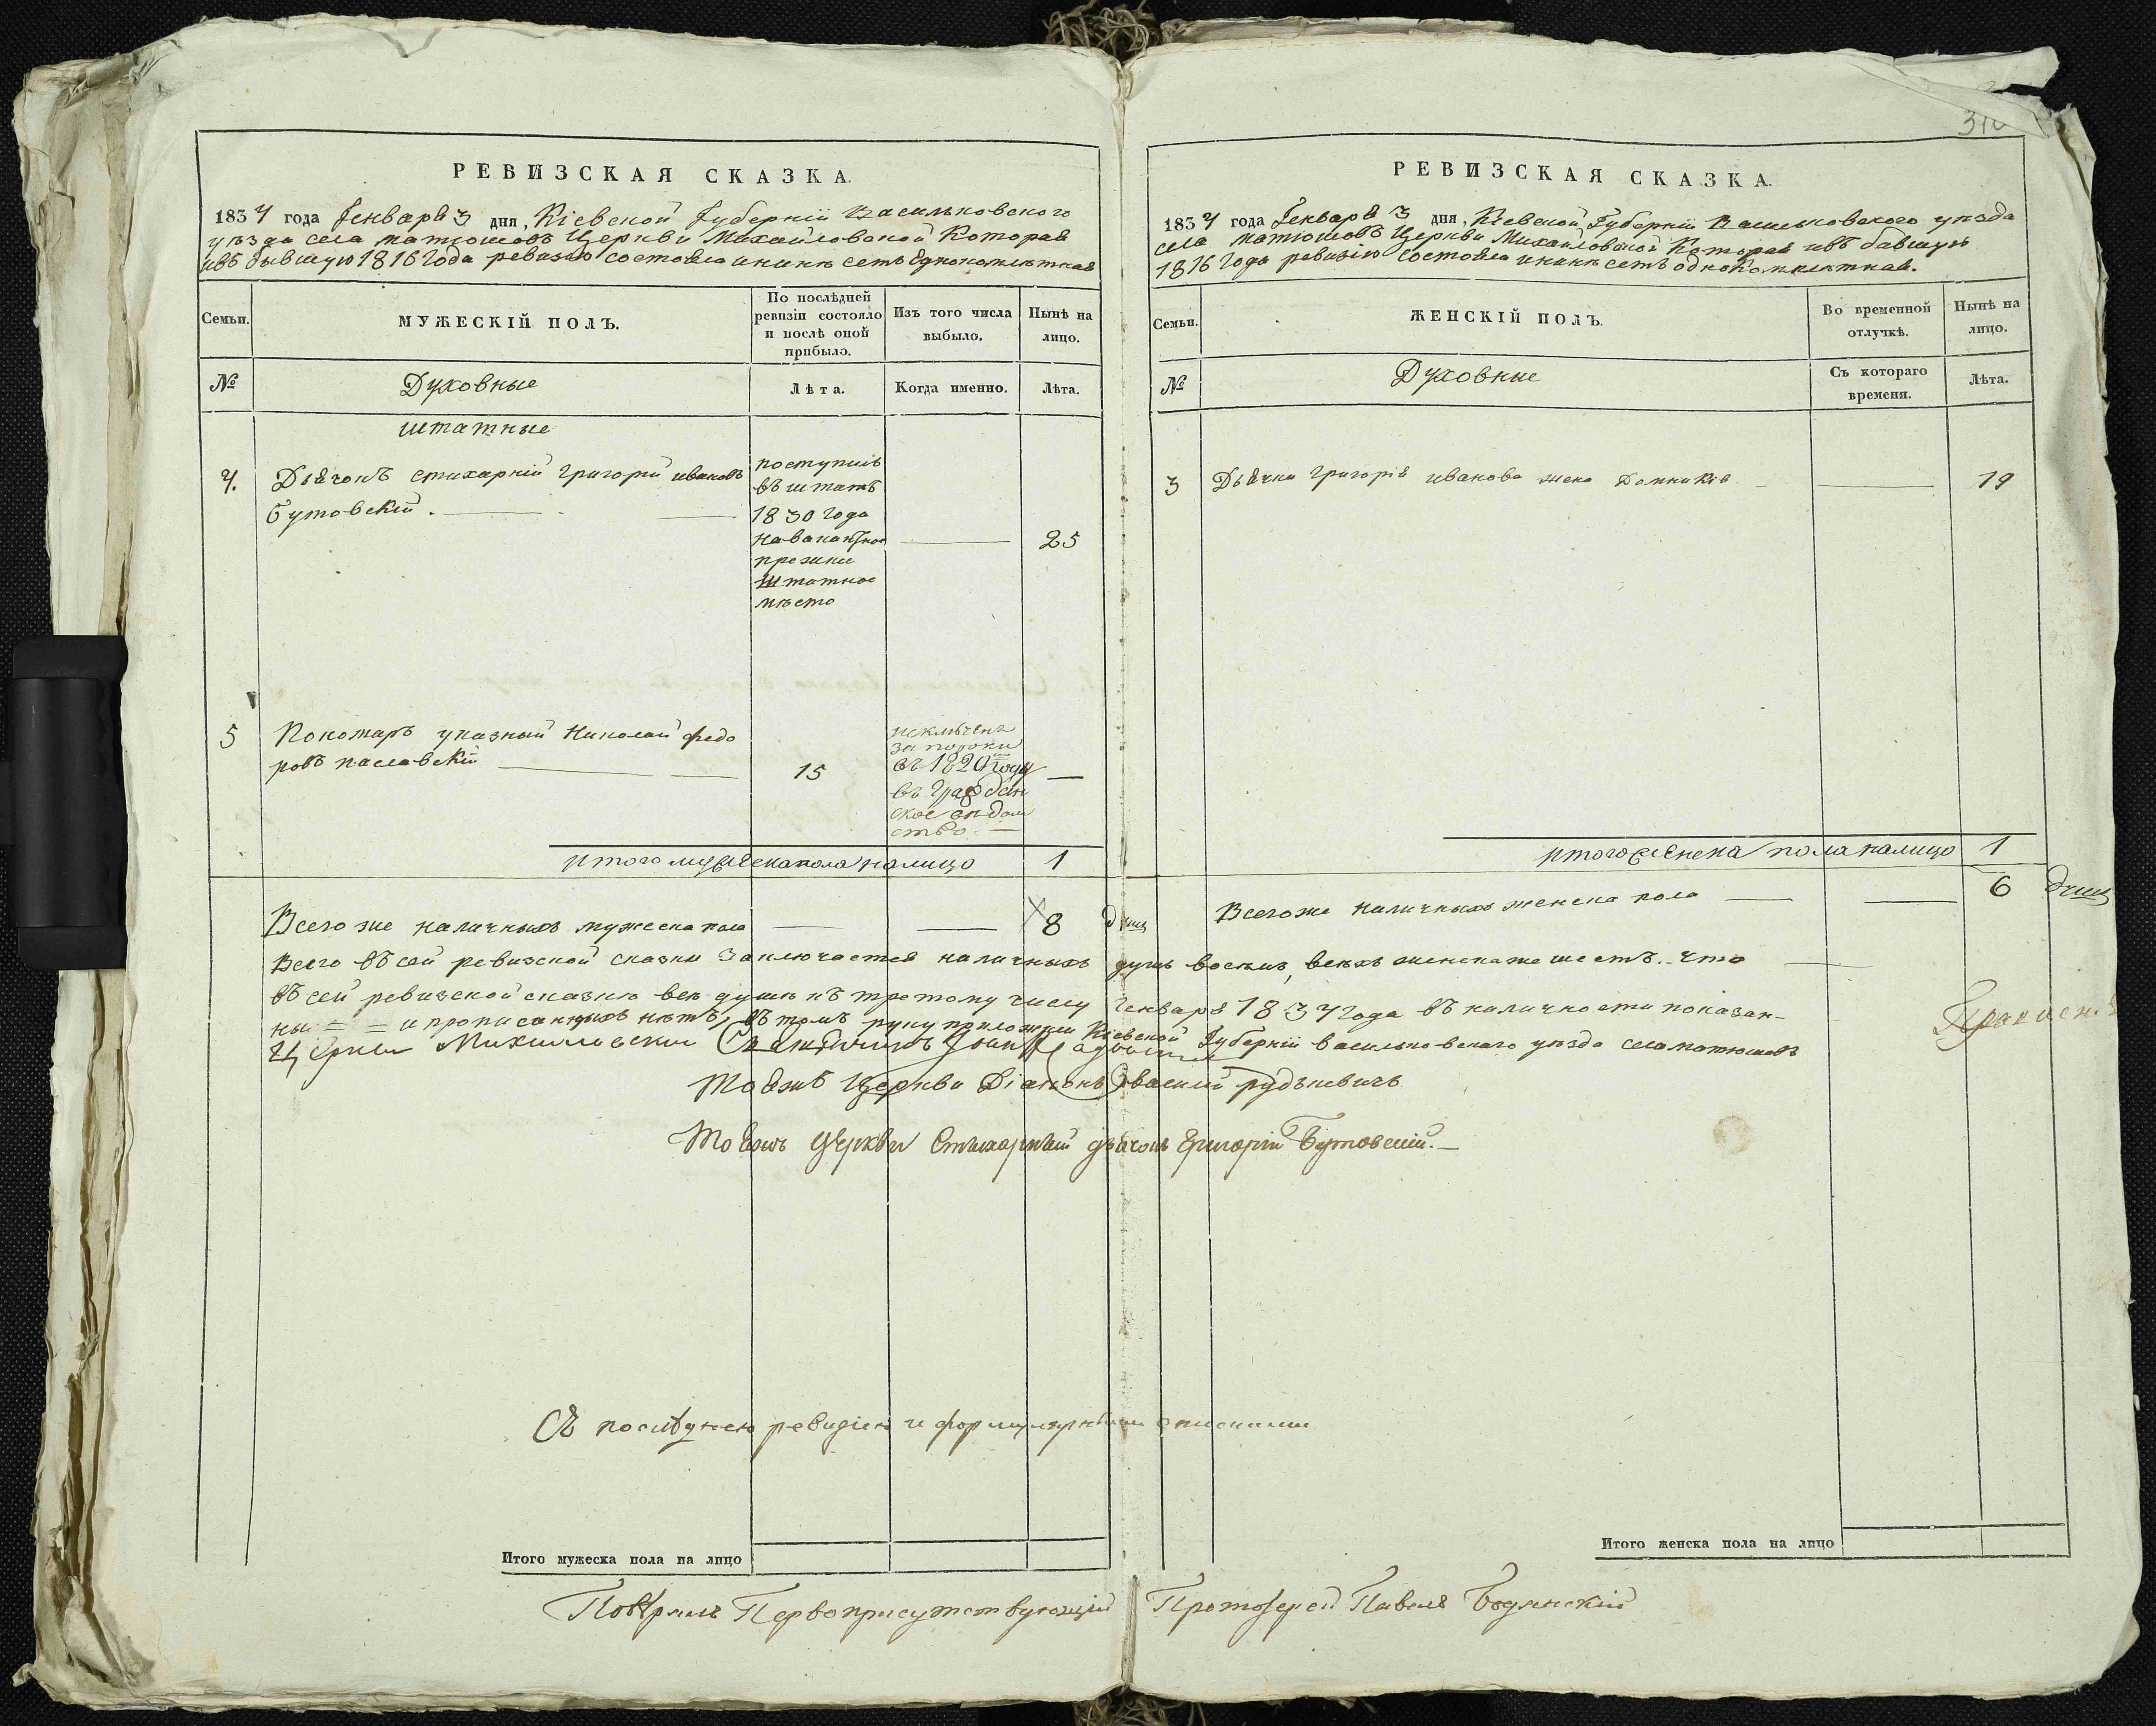 РЕВИЗСКАЯ СКАЗКА.
1834 года Генваря 3 дня, Кіевской Губерніи Васильковского
уѣзда села матюшовъ Церкви Михайловской Которая
ивъ бывшую 1816 Года ревизію состояла инынѣ есть Однокомплѣтная
Семьи.
МУЖЕСКІЙ ПОЛЪ.
По послѣдней ревизіи состояло и послѣ оной прибыло.
Изъ того числа выбыло.
Нынѣ на лицо.
№
Духовные
Лѣта.
Когда именно.
Лѣта.
штатные
4. Дьячокъ стихарній григорій ивановъ
бутовскій.
поступилъ
въ штатъ
1830 Года
на вакантное
прежнее
штатное
мѣсто
25
5 Пономарь указный Николай федо
ровъ паславскій
15
исключенъ
за пороки
въ 1829 году
въ Граждан
ское вѣдом
ство
Итого мужеска пола налицо 1
Всего же наличныхъ мужеска пола 8 душ
РЕВИЗСКАЯ СКАЗКА.
1834 года Генваря 3 дня, Кіевской Губерніи Васильковского уѣзда
села матюшовъ Церкви Михайловской Которая ивъ бывшую
1816 Года ревизію состояла инынѣ есть однокомплѣтная.
Семьи.
ЖЕНСКІЙ ПОЛЪ.
Во временной отлучкѣ.
Нынѣ на лицо.
№
Духовные
Съ котораго времени.
Лѣта.
3 Дьячка григорія иванова жена Домникія 19
Итого женска пола налицо 1
Всегоже наличныхъ женска пола 6 душ
Всего въ сей ревизской сказки заключается наличныхъ душъ восемъ, всѣхъ женска же шесть. что
въ сей ревизской сказкѣ всѣ души къ третому числу Генваря 1834 года въ наличности показан-
ны и прописанныхъ нѣтъ, въ томъ руку приложили Кіевской Губерніи васильковскаго уѣзда села матюшовъ
Церкви Михайловской Священникъ Іоаннъ
Тоėжъ Церкви Діаконъ василій рудкевичъ
Тоежъ Церкви Стихарный дьячокъ Григорій Бутовскій.
Съ послѣднею ревизіею и формулярными списками
Итого мужеска пола на лицо
Итого женска пола на лицо
Повѣрялъ Первоприсутствующій Протоіерей Павелъ Бодянскій